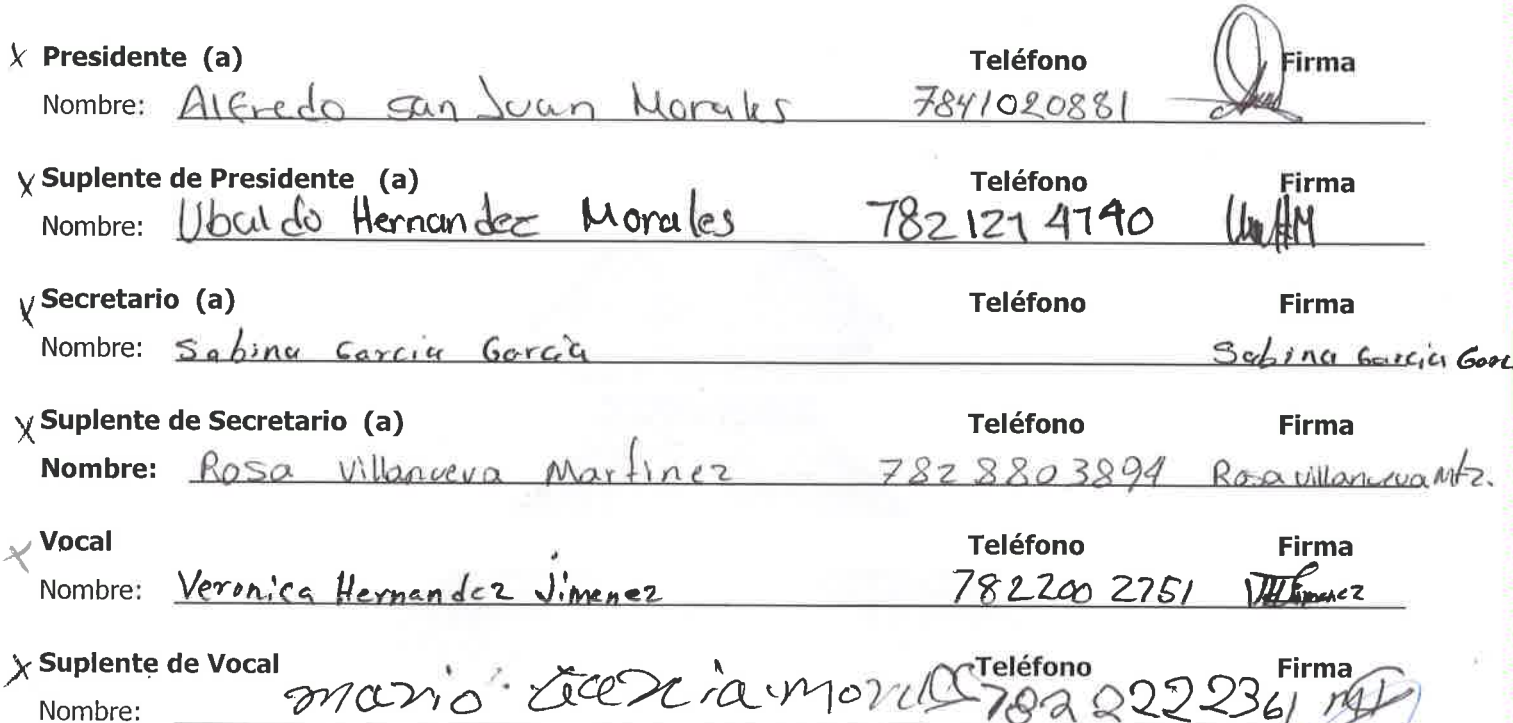 X Presidente (a) Teléfono Firma
Nombre: Alfredo san Juan Morales 7841020881
X Suplente de Presidente (a) Teléfono Firma
Nombre: Ubaldo Hernandez Morales
X Secretario (a) Teléfono Firma
Nombre: Sabina Garcia Garcia Sabina Garcia Garc
X Suplente de Secretario (a) Teléfono Firma
Nombre: Rosa Villanueva Martinez 7828803894 Rosa Villanueva Mtz.
X Vocal Teléfono Firma
Nombre: Veronica Hernandez Jimenez 782200 2751
X Suplente de Vocal Teléfono Firma
Nombre: mario 782 2222361